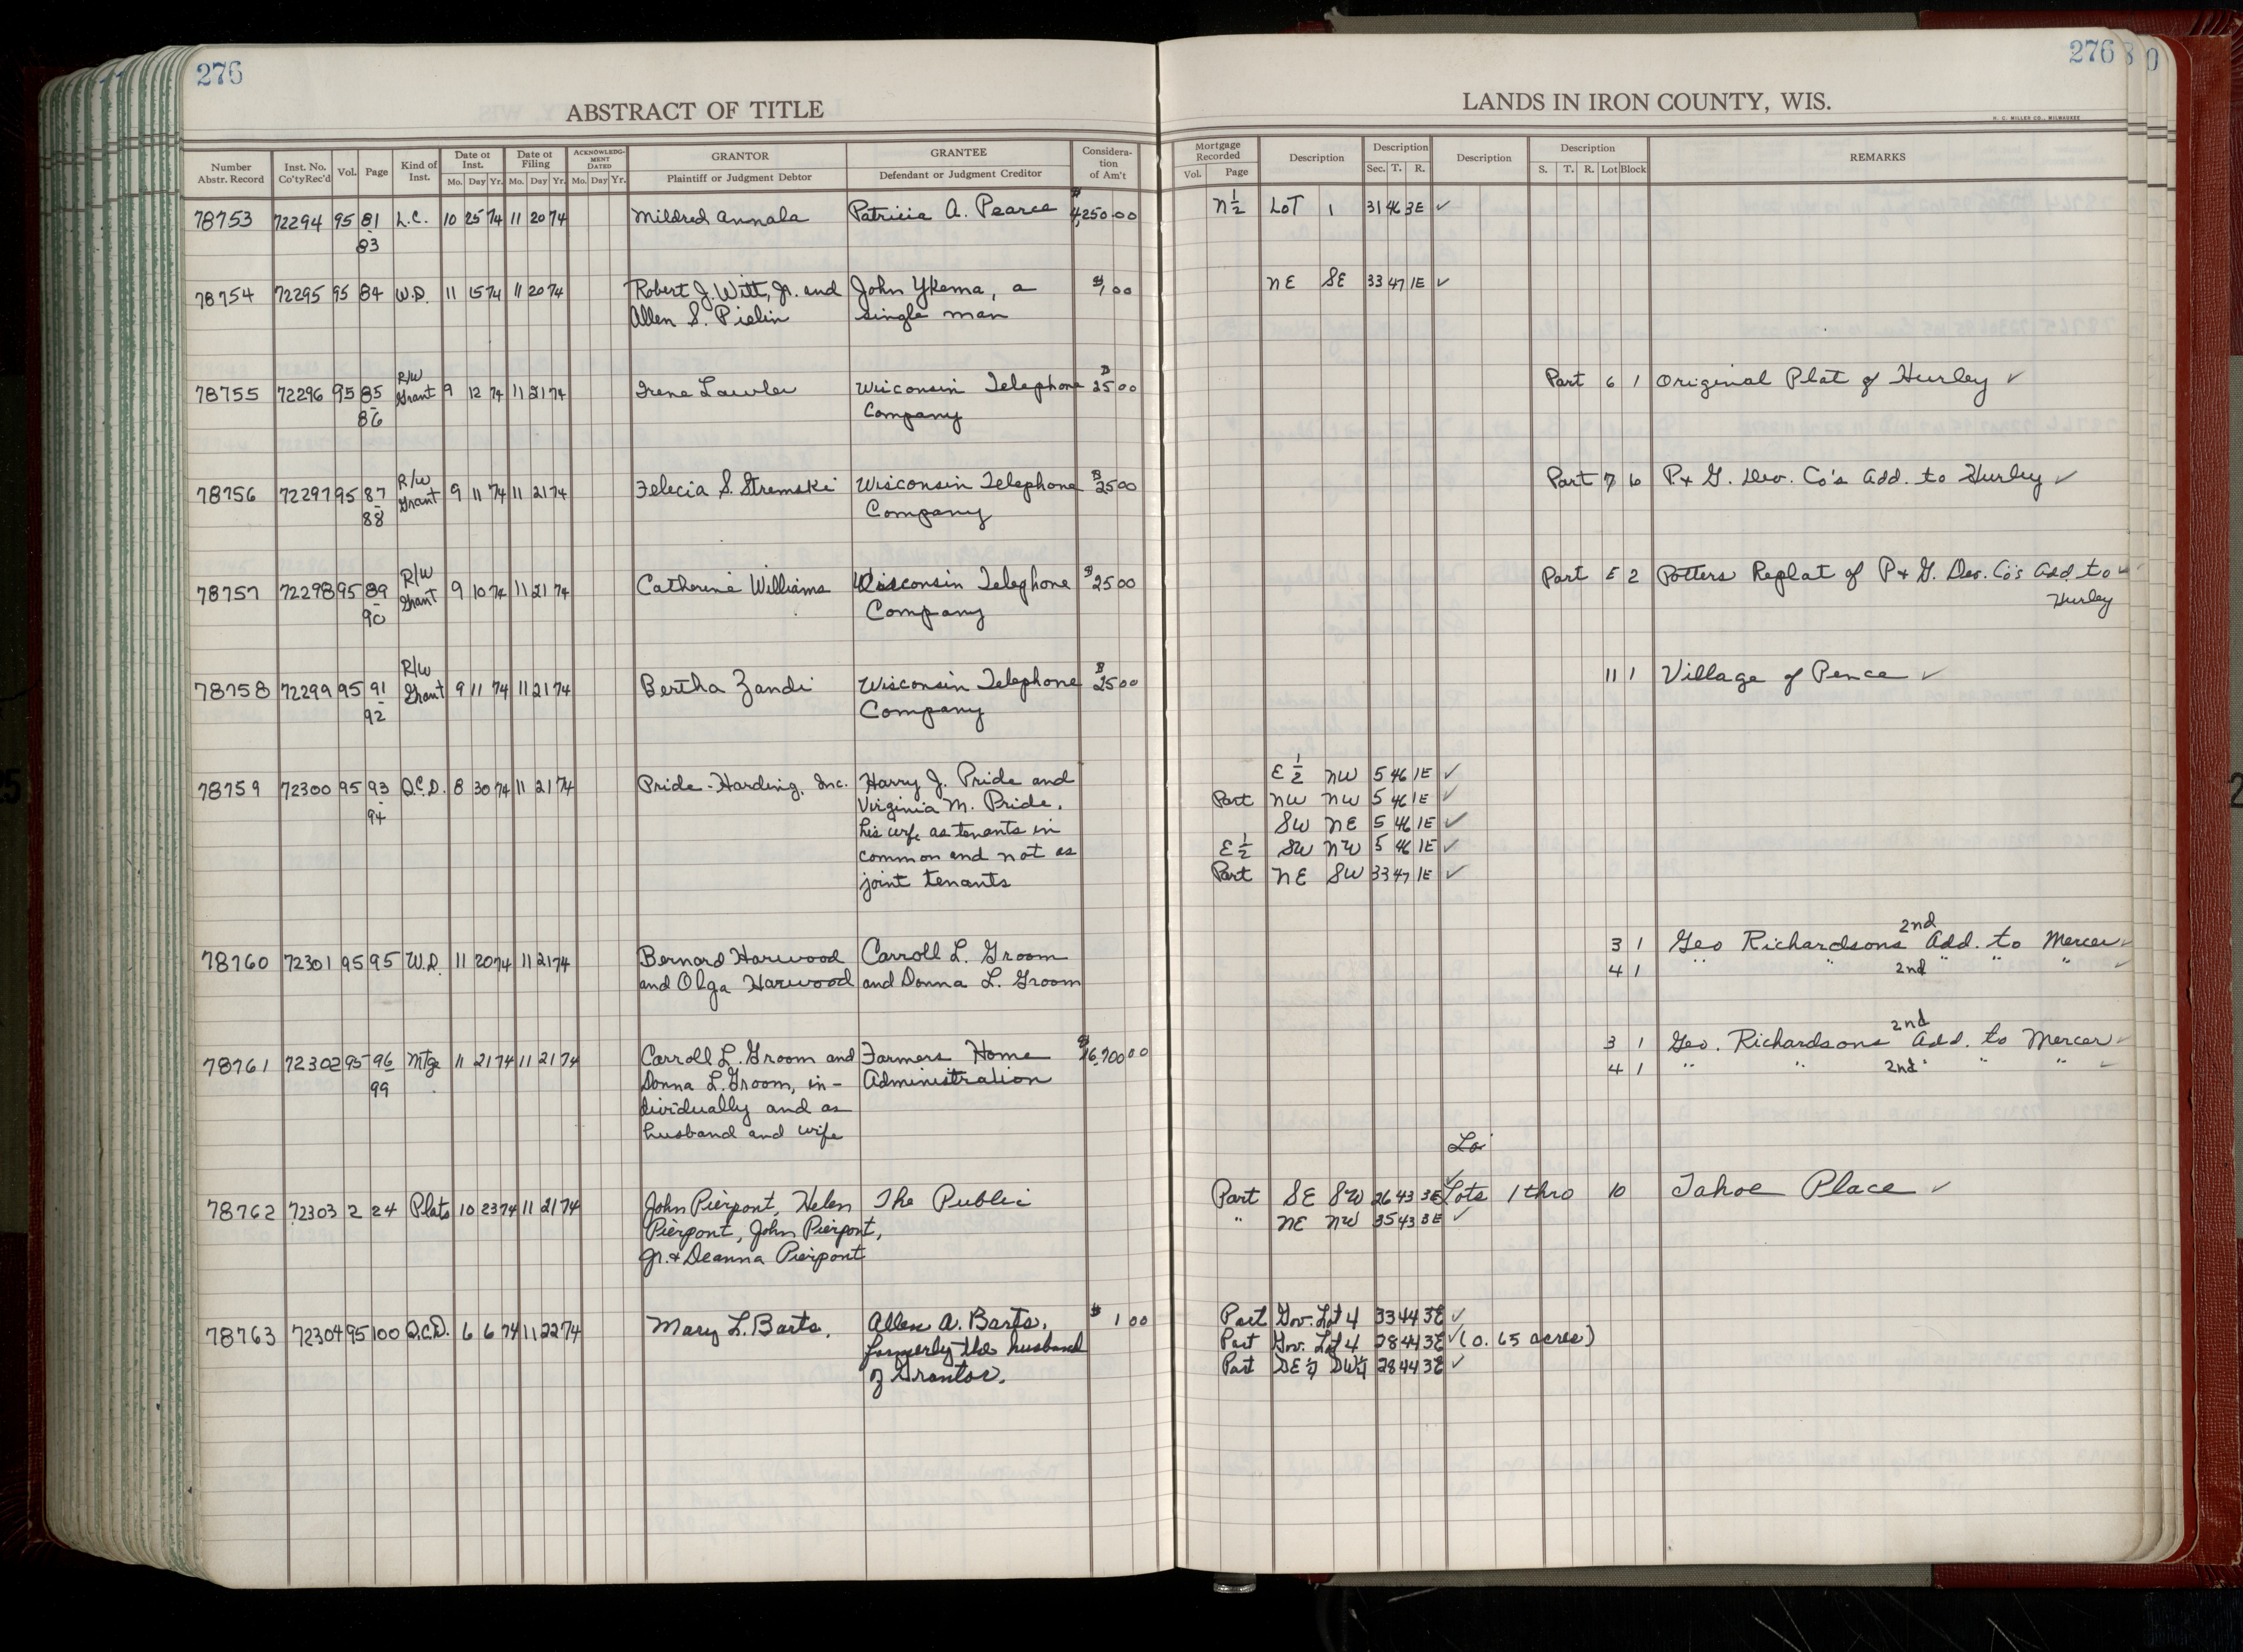 276
276
8
0
ABSTRACT OF TITLE
LANDS IN IRON COUNTY, WIS.
H. C. MILLER CO., MILWAUKEE
Number Abstr. Record Inst. No. Co'tyRec'd Vol. Page Kind of Inst. Date of Inst. Mo. Day Yr. Date of Filing Mo. Day Yr. ACKNOWLEDG-MENT DATED Mo. Day Yr. GRANTOR Plaintiff or Judgment Debtor GRANTEE Defendant or Judgment Creditor Considera-tion of Am't
Mortgage Recorded Vol. Page Description Description Sec. T. R. Description Description S. T. R. Lot Block REMARKS
78753 72294 95 81 L.C. 10 25 74 11 20 74 Mildred Annala Patricia A. Pearce $4,250.00 N½ LOT 1 31 46 3E ✓
- 83
78754 72295 95 84 W.D. 11 15 74 11 20 74 Robert J. Witt, Jr. and John Ykema, a $1 00 NE SE 33 47 1E ✓
Allen S. Pielin single man
78755 72296 95 85 R/W Grant 9 12 74 11 21 74 Irene Lawler Wisconsin Telephone $25 00 Part 6 1 Original Plat of Hurley ✓
- 86 Company
78756 72297 95 87 R/W Grant 9 11 74 11 21 74 Felecia S. Stremski Wisconsin Telephone $25 00 Part 7 6 P. & G. Dev. Co's Add. to Hurley ✓
- 88 Company
78757 72298 95 89 R/W Grant 9 10 74 11 21 74 Catherine Williams Wisconsin Telephone $25 00 Part E 2 Potters Replat of P & G. Dev. Co's Add. to ✓
- 90 Company Hurley
78758 72299 95 91 R/W Grant 9 11 74 11 21 74 Bertha Zandi Wisconsin Telephone $25 00 11 1 Village of Pence ✓
- 92 Company
78759 72300 95 93 Q.C.D. 8 30 74 11 21 74 Pride-Harding, Inc. Harry J. Pride and E½ NW 5 46 1E ✓
- 94 Virginia M. Pride, Part NW NW 5 46 1E ✓
his wife as tenants in SW NE 5 46 1E ✓
common and not as E½ SW NW 5 46 1E ✓
joint tenants Part NE SW 33 47 1E ✓
78760 72301 95 95 W.D. 11 20 74 11 21 74 Bernard Harwood Carroll L. Groom 3 1 Geo Richardsons 2nd Add. to Mercer ✓
and Olga Harwood and Donna L. Groom 4 1 " " 2nd " " " ✓
78761 72302 95 96 Mtge 11 21 74 11 21 74 Carroll L. Groom and Farmers Home $16,700 00 3 1 Geo. Richardsons 2nd Add. to Mercer ✓
- 99 Donna L. Groom, in- Administration 4 1 " " 2nd " " " ✓
dividually and as
husband and wife
Lo
78762 72303 2 24 Plats 10 23 74 11 21 74 John Pierpont, Helen The Public Part SE SW 26 43 3E ✓ Lots 1 thro 10 Tahoe Place ✓
Pierpont, John Pierpont, " NE NW 35 43 3E ✓
Jr. & Deanna Pierpont
78763 72304 95 100 Q.C.D. 6 6 74 11 22 74 Mary L. Barts, Allen A. Barts, $1 00 Part Gov. Lot 4 33 44 3E ✓
formerly the husband Part Gov. Lot 4 28 44 3E ✓ (0.65 acres)
of Grantor. Part SE¼ SW¼ 28 44 3E ✓